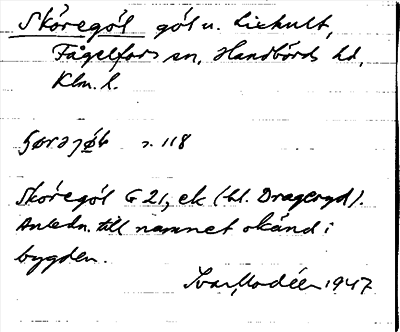 Sköregöl göl u. Liehult,
Fågelfors sn, Handbörds hd,
Klm. l.
s. 118
Sköregöl G 21, ek (bl. Drageryd).
Anledn. till namnet okänd i
bygden.
Ivar Modéer 1947